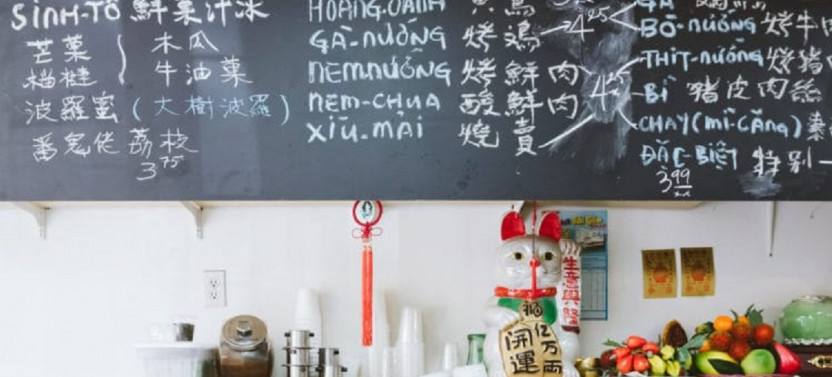 SINH-TỐ 鮮菓汁冰
芒菓 木瓜
榴槤 牛油菓
波羅蜜 (大樹波羅)
番鬼佬荔枝
3 75
HOÀNG.OANH 黄鳥
GÀ-NƯỚNG 烤鴻
NEM NƯỚNG 烤鮮肉
NEM-CHUA 酸鮮肉
XÍU.MẠI 燒賣
4 25
4 25
GÀ
BÒ-NƯỚNG 烤牛肉
THỊT-NƯỚNG 烤猪
BÌ 猪皮肉絲
CHAY (MÌ-CĂNG) 素
ĐẶC-BIỆT 特别
3 99
生意興隆
福
億万両
開運